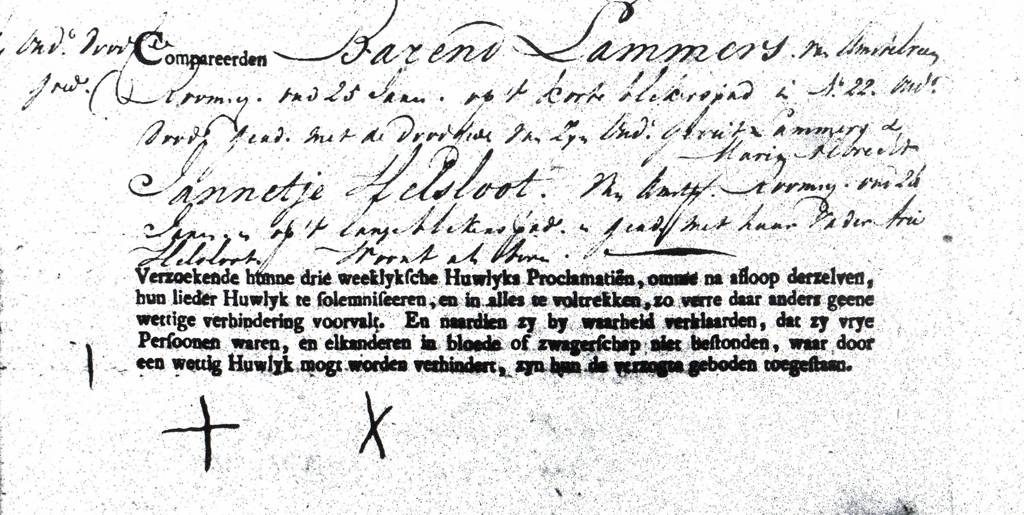 Compareerden Barend Lammers van Amsterdam
Roomsg. oud 25 Jaar. op't korte blekerspad in N. 22. Oud.
doodt geads. met de
Jannetje Helsloot. van Amst. Roomsg. oud 26
Jaar. op't lange blekerspad. geads. met haar Vader Arie
Helsloot. Woont als boven.
Verzoekende hunne drie weeklykſche Huwlyks Proclamatiën, omme na afloop derzelven,
hun lieder Huwlyk te ſolemniſeeren, en in alles te voltrekken, zo verre daar anders geene
wettige verhindering voorvalt. En naardien zy by waarheid verklaarden, dat zy vrye
Perſoonen waren, en elkanderen in bloede of zwagerſchap niet beſtonden, waar door
een wettig Huwlyk mogt worden verhindert, zyn hun de verzogte geboden toegeſtaan.